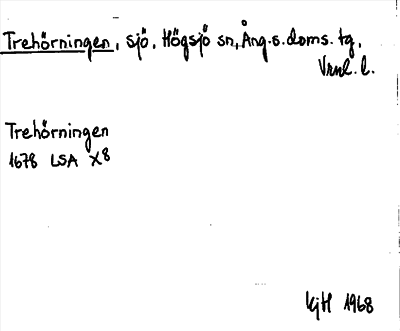 Trehörningen, sjö, Högsjö sn, Ång.s.doms. tg,
Vrml. l.
Trehörningen
1678 LSA X8
KjH 1968